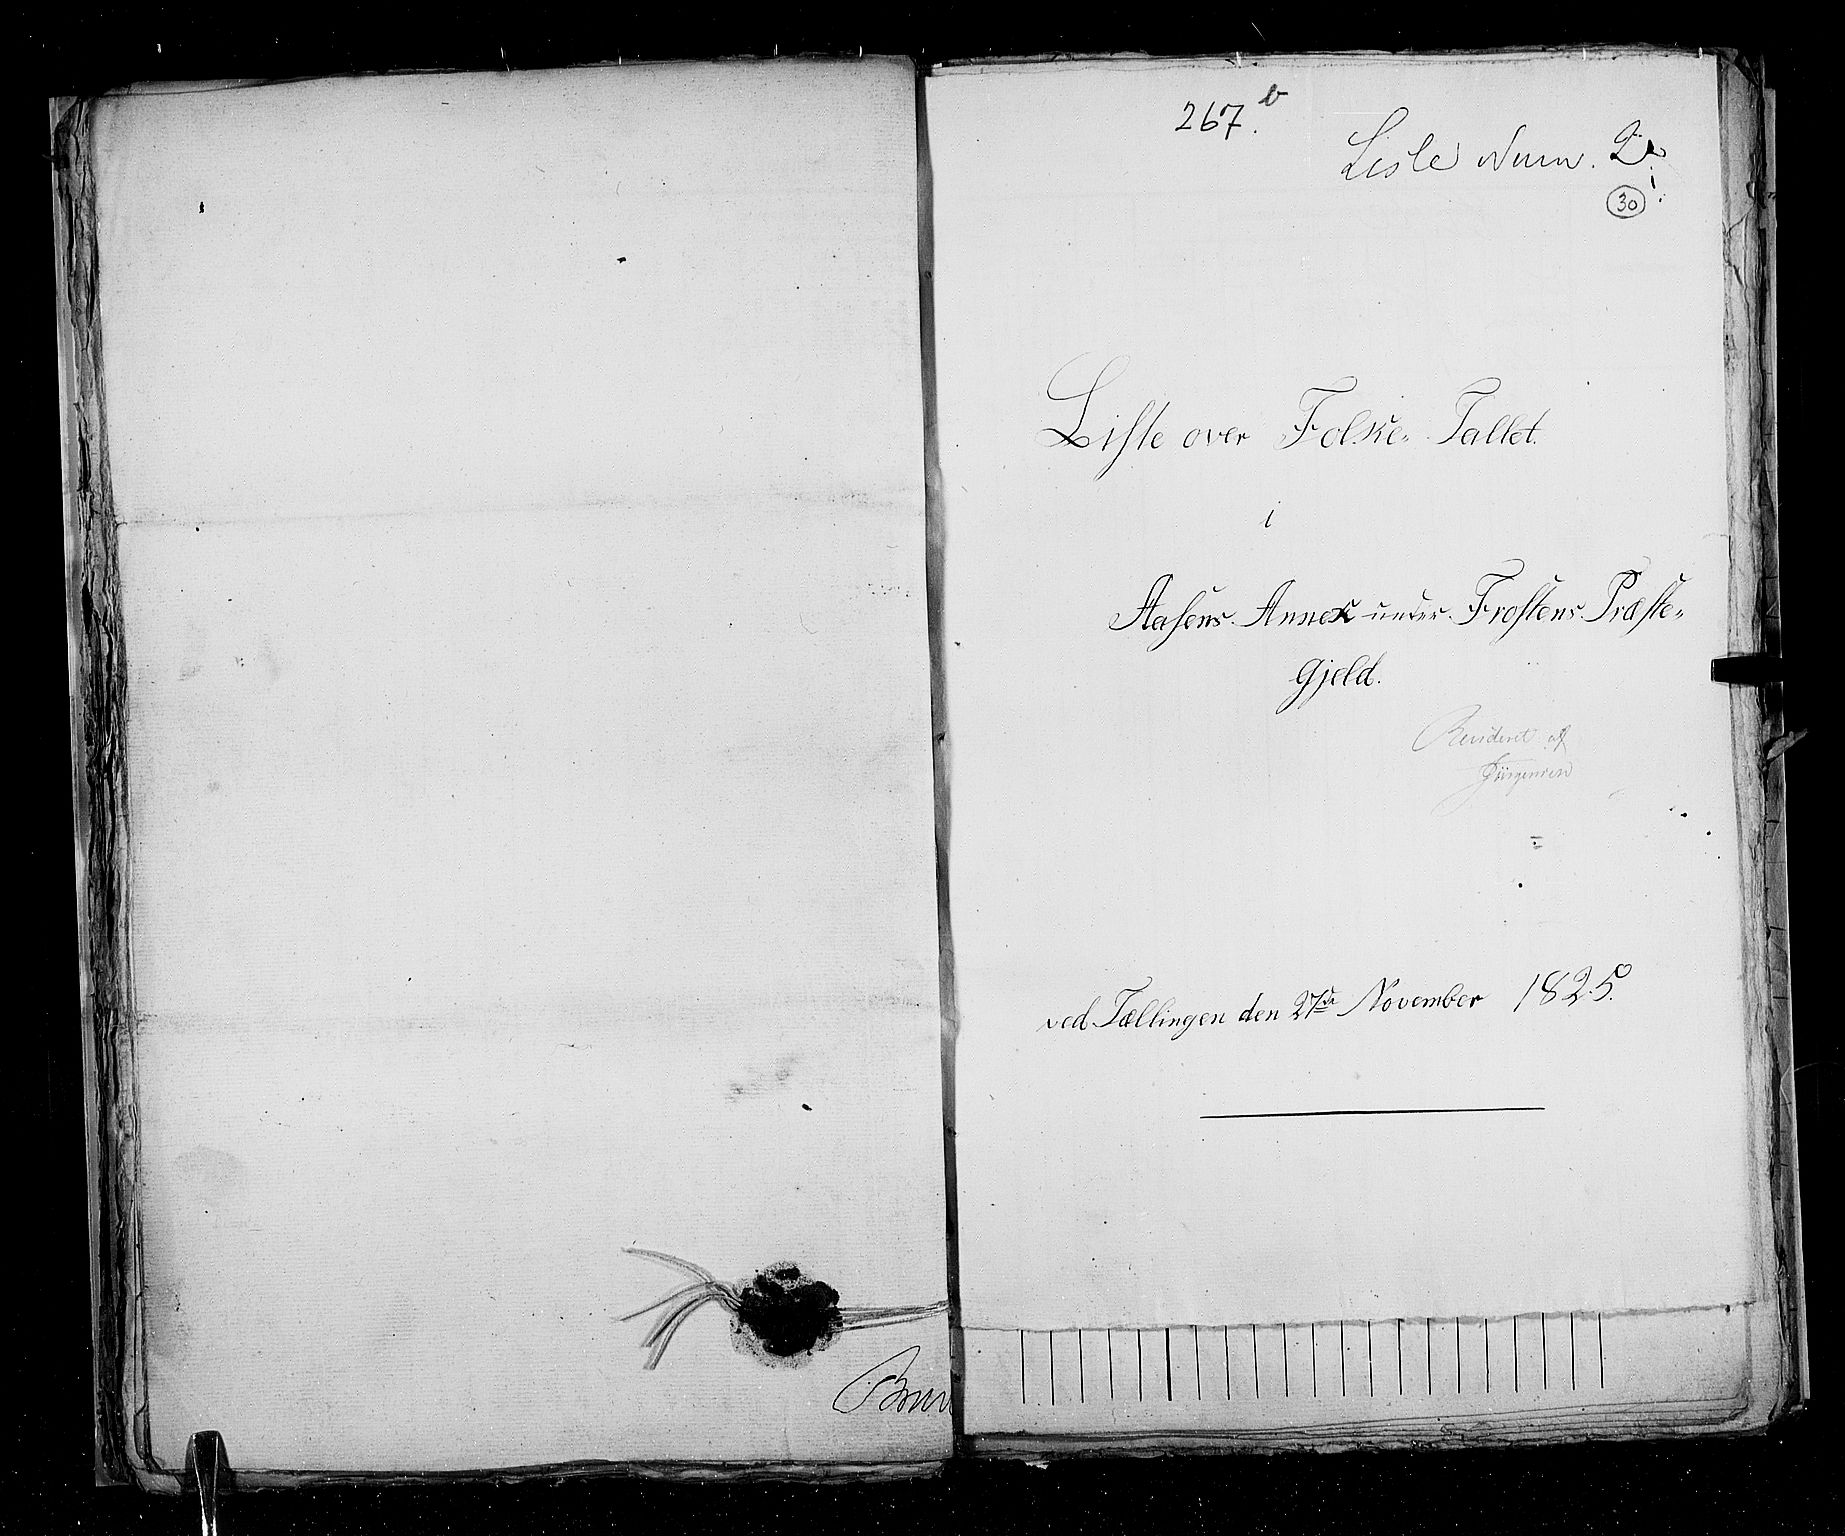 267.b
Liste Num. 2
30
Liste over Folke-Tallet
i
Aasens Annex under Frostens Præste-
gjeld.
Revideret af
Jörgensen
ved Tællingen den 27de November 1825.